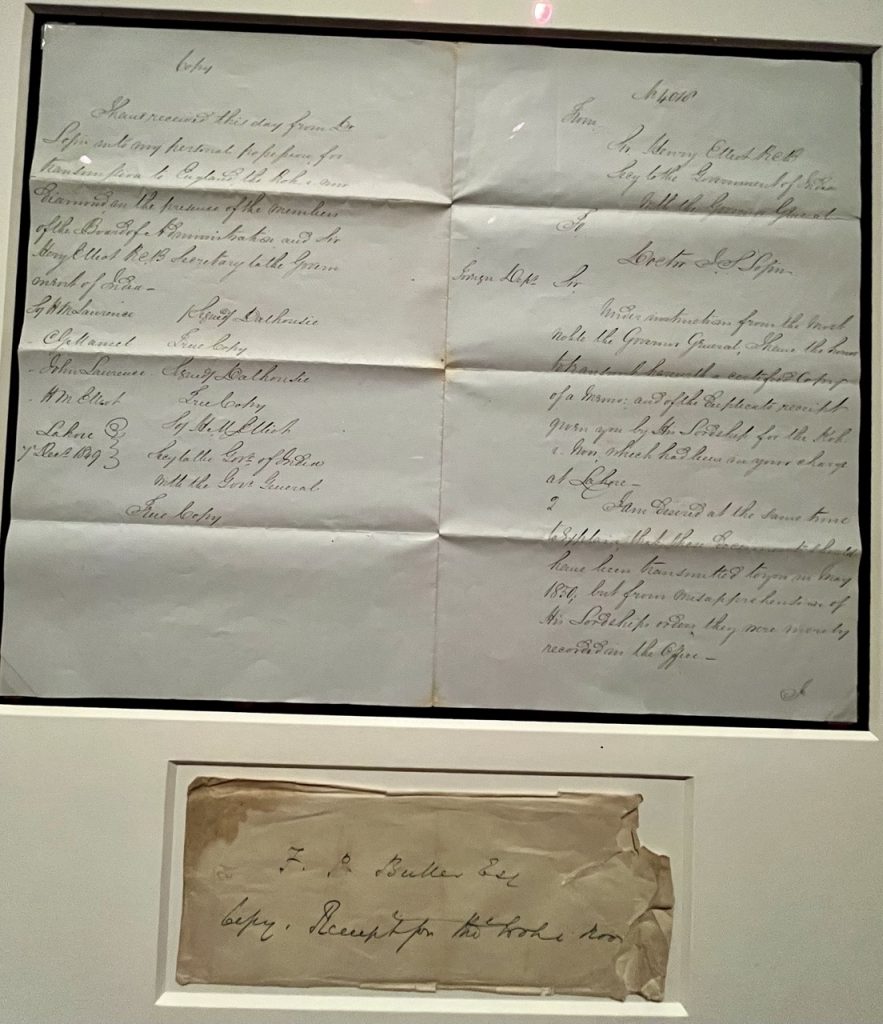 Copy
I have received this day from Dr
Login into my personal possession for
transmission to England, the Koh i noor
Diamond, in the presence of the members
of the Board of Administration, and Sir
Henry Elliot K.C.B Secretary to the Govern
ment of India —
Sg H M Lawrence Signed Dalhousie
" C G Mansel True Copy
" John Lawrence Signed Dalhousie
" H M Elliot True Copy
Sg H. M. Elliot
Lahore
7 Decr 1849 Secy to the Govt of India
with the Govr General
True Copy
No 4018
From
Sir Henry Elliot K.C.B
Secy to the Government of India
With the Governor General
To
Doctor J. S. Login
Foreign Dept Sir
Under instruction from the Most
noble the Governor General, I have the honor
to transmit herewith a certified Copy
of a Memo: and of the Duplicate receipt
given you by His Lordship for the Koh
i. Noor, which had been in your charge
at Lahore —
2 I am desired at the same time
to Explain, that these Documents should
have been transmitted to you in May
1850, but from misapprehension of
His Lordships orders they were merely
recorded in the Office —
F. P. Buller Esq
Copy. Receipt for the Koh i noor